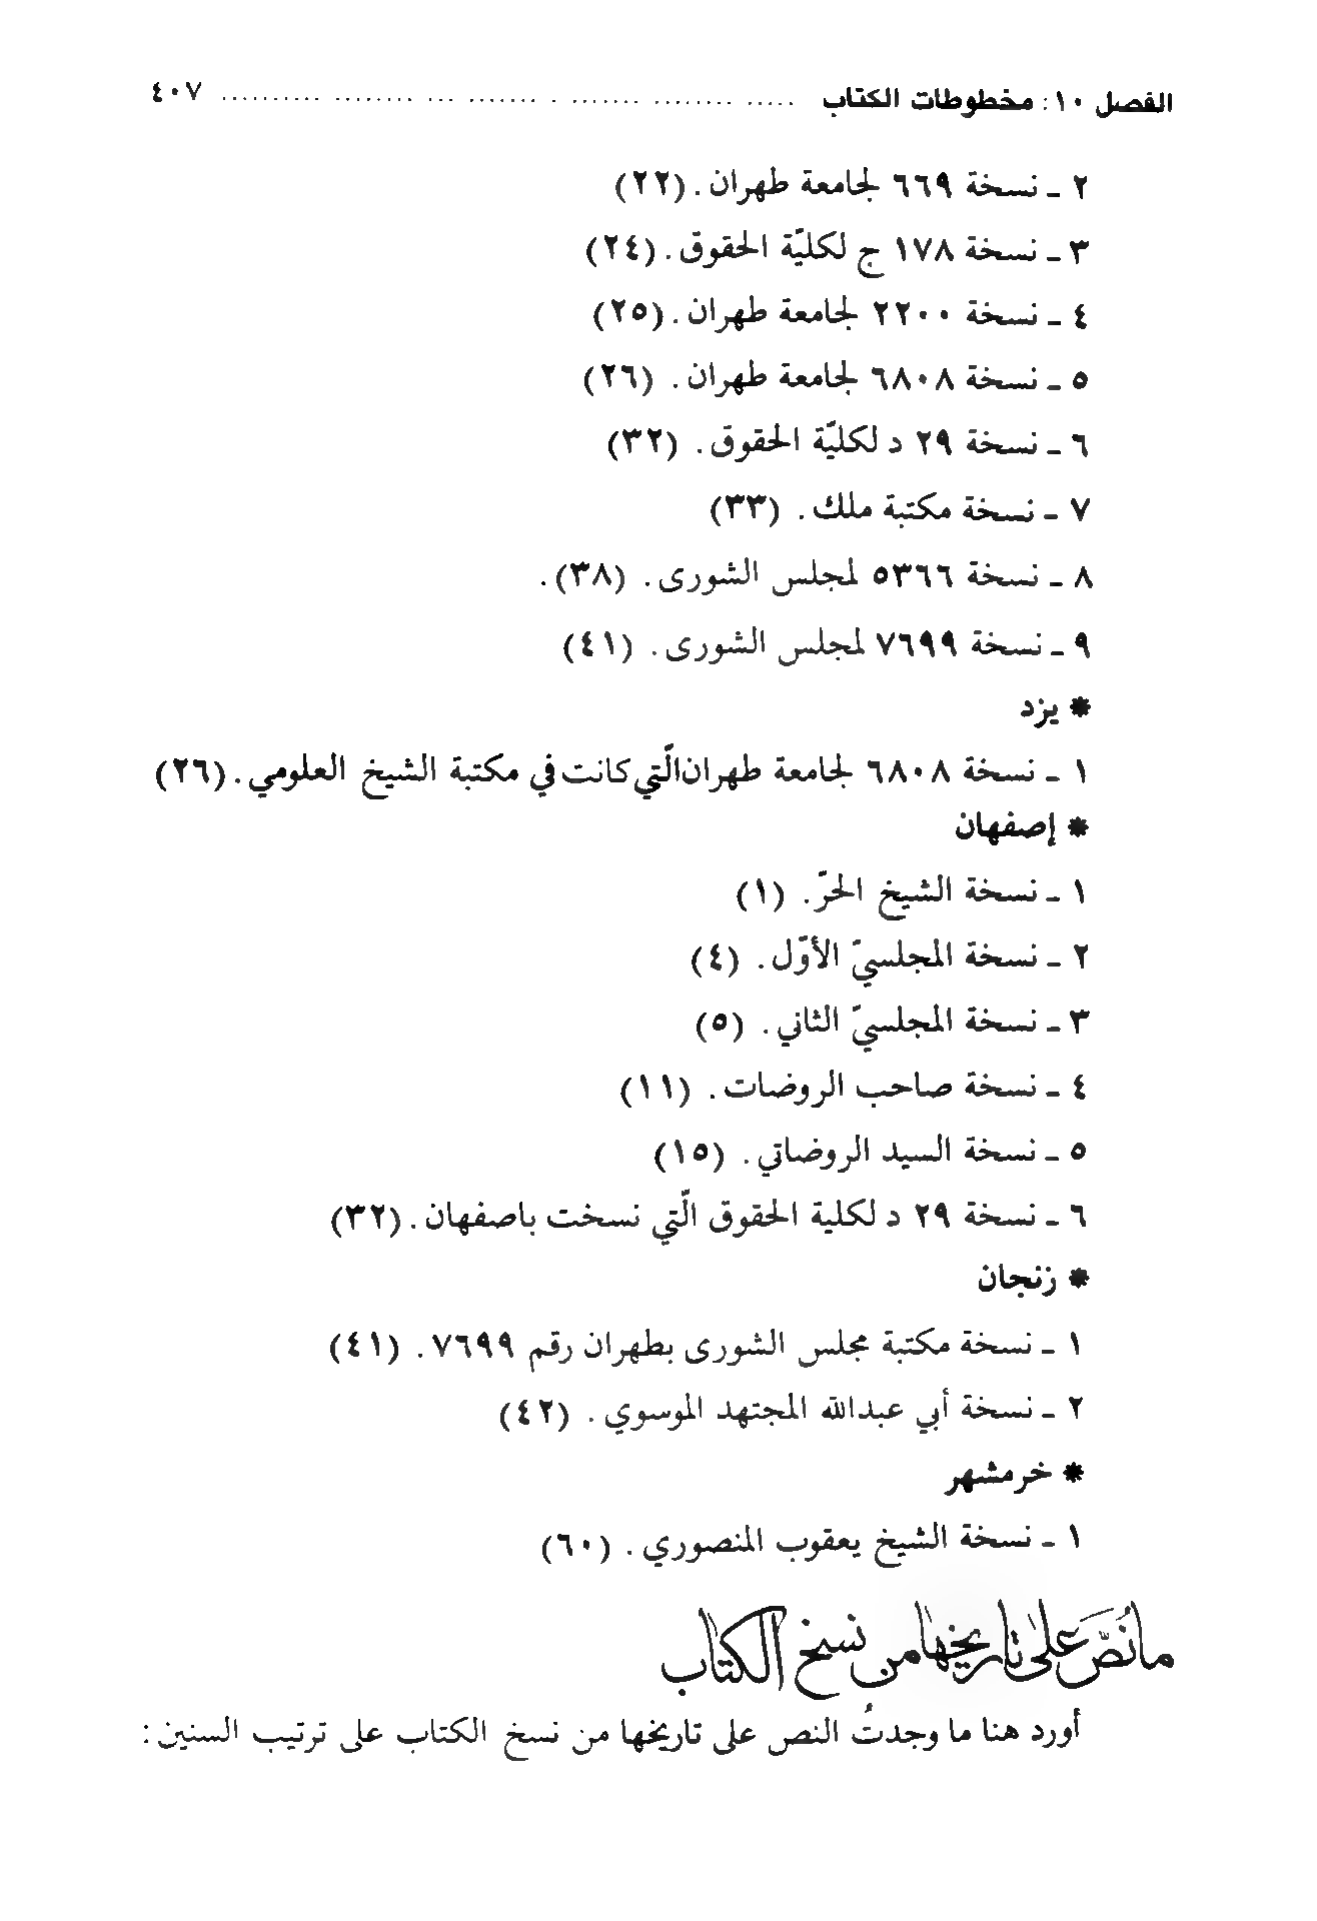 الفصل ١٠: مخطوطات الكتاب ................................................ ٤٠٧
٢ ـ نسخة ٦٦٩ لجامعة طهران. (٢٢)
٣ ـ نسخة ١٧٨ ج لكليّة الحقوق. (٢٤)
٤ ـ نسخة ٢٢٠٠ لجامعة طهران. (٢٥)
٥ ـ نسخة ٦٨٠٨ لجامعة طهران. (٢٦)
٦ ـ نسخة ٢٩ د لكليّة الحقوق. (٣٢)
٧ ـ نسخة مكتبة ملك. (٣٣)
٨ ـ نسخة ٥٣٦٦ لمجلس الشورى. (٣٨).
٩ ـ نسخة ٧٦٩٩ لمجلس الشورى. (٤١)
* يزد
١ ـ نسخة ٦٨٠٨ لجامعة طهران الّتي كانت في مكتبة الشيخ العلومي. (٢٦)
* إصفهان
١ ـ نسخة الشيخ الحرّ. (١)
٢ ـ نسخة المجلسيّ الأوّل. (٤)
٣ ـ نسخة المجلسيّ الثاني. (٥)
٤ ـ نسخة صاحب الروضات. (١١)
٥ ـ نسخة السيد الروضاتي. (١٥)
٦ ـ نسخة ٢٩ د لكلية الحقوق الّتي نسخت باصفهان. (٣٢)
* زنجان
١ ـ نسخة مكتبة مجلس الشورى بطهران رقم ٧٦٩٩. (٤١)
٢ ـ نسخة أبي عبدالله المجتهد الموسوي. (٤٢)
* خرمشهر
١ ـ نسخة الشيخ يعقوب المنصوري. (٦٠)
ما نُصَّ على تاريخها من نسخ الكتاب
أورد هنا ما وجدتُ النص على تاريخها من نسخ الكتاب على ترتيب السنين: